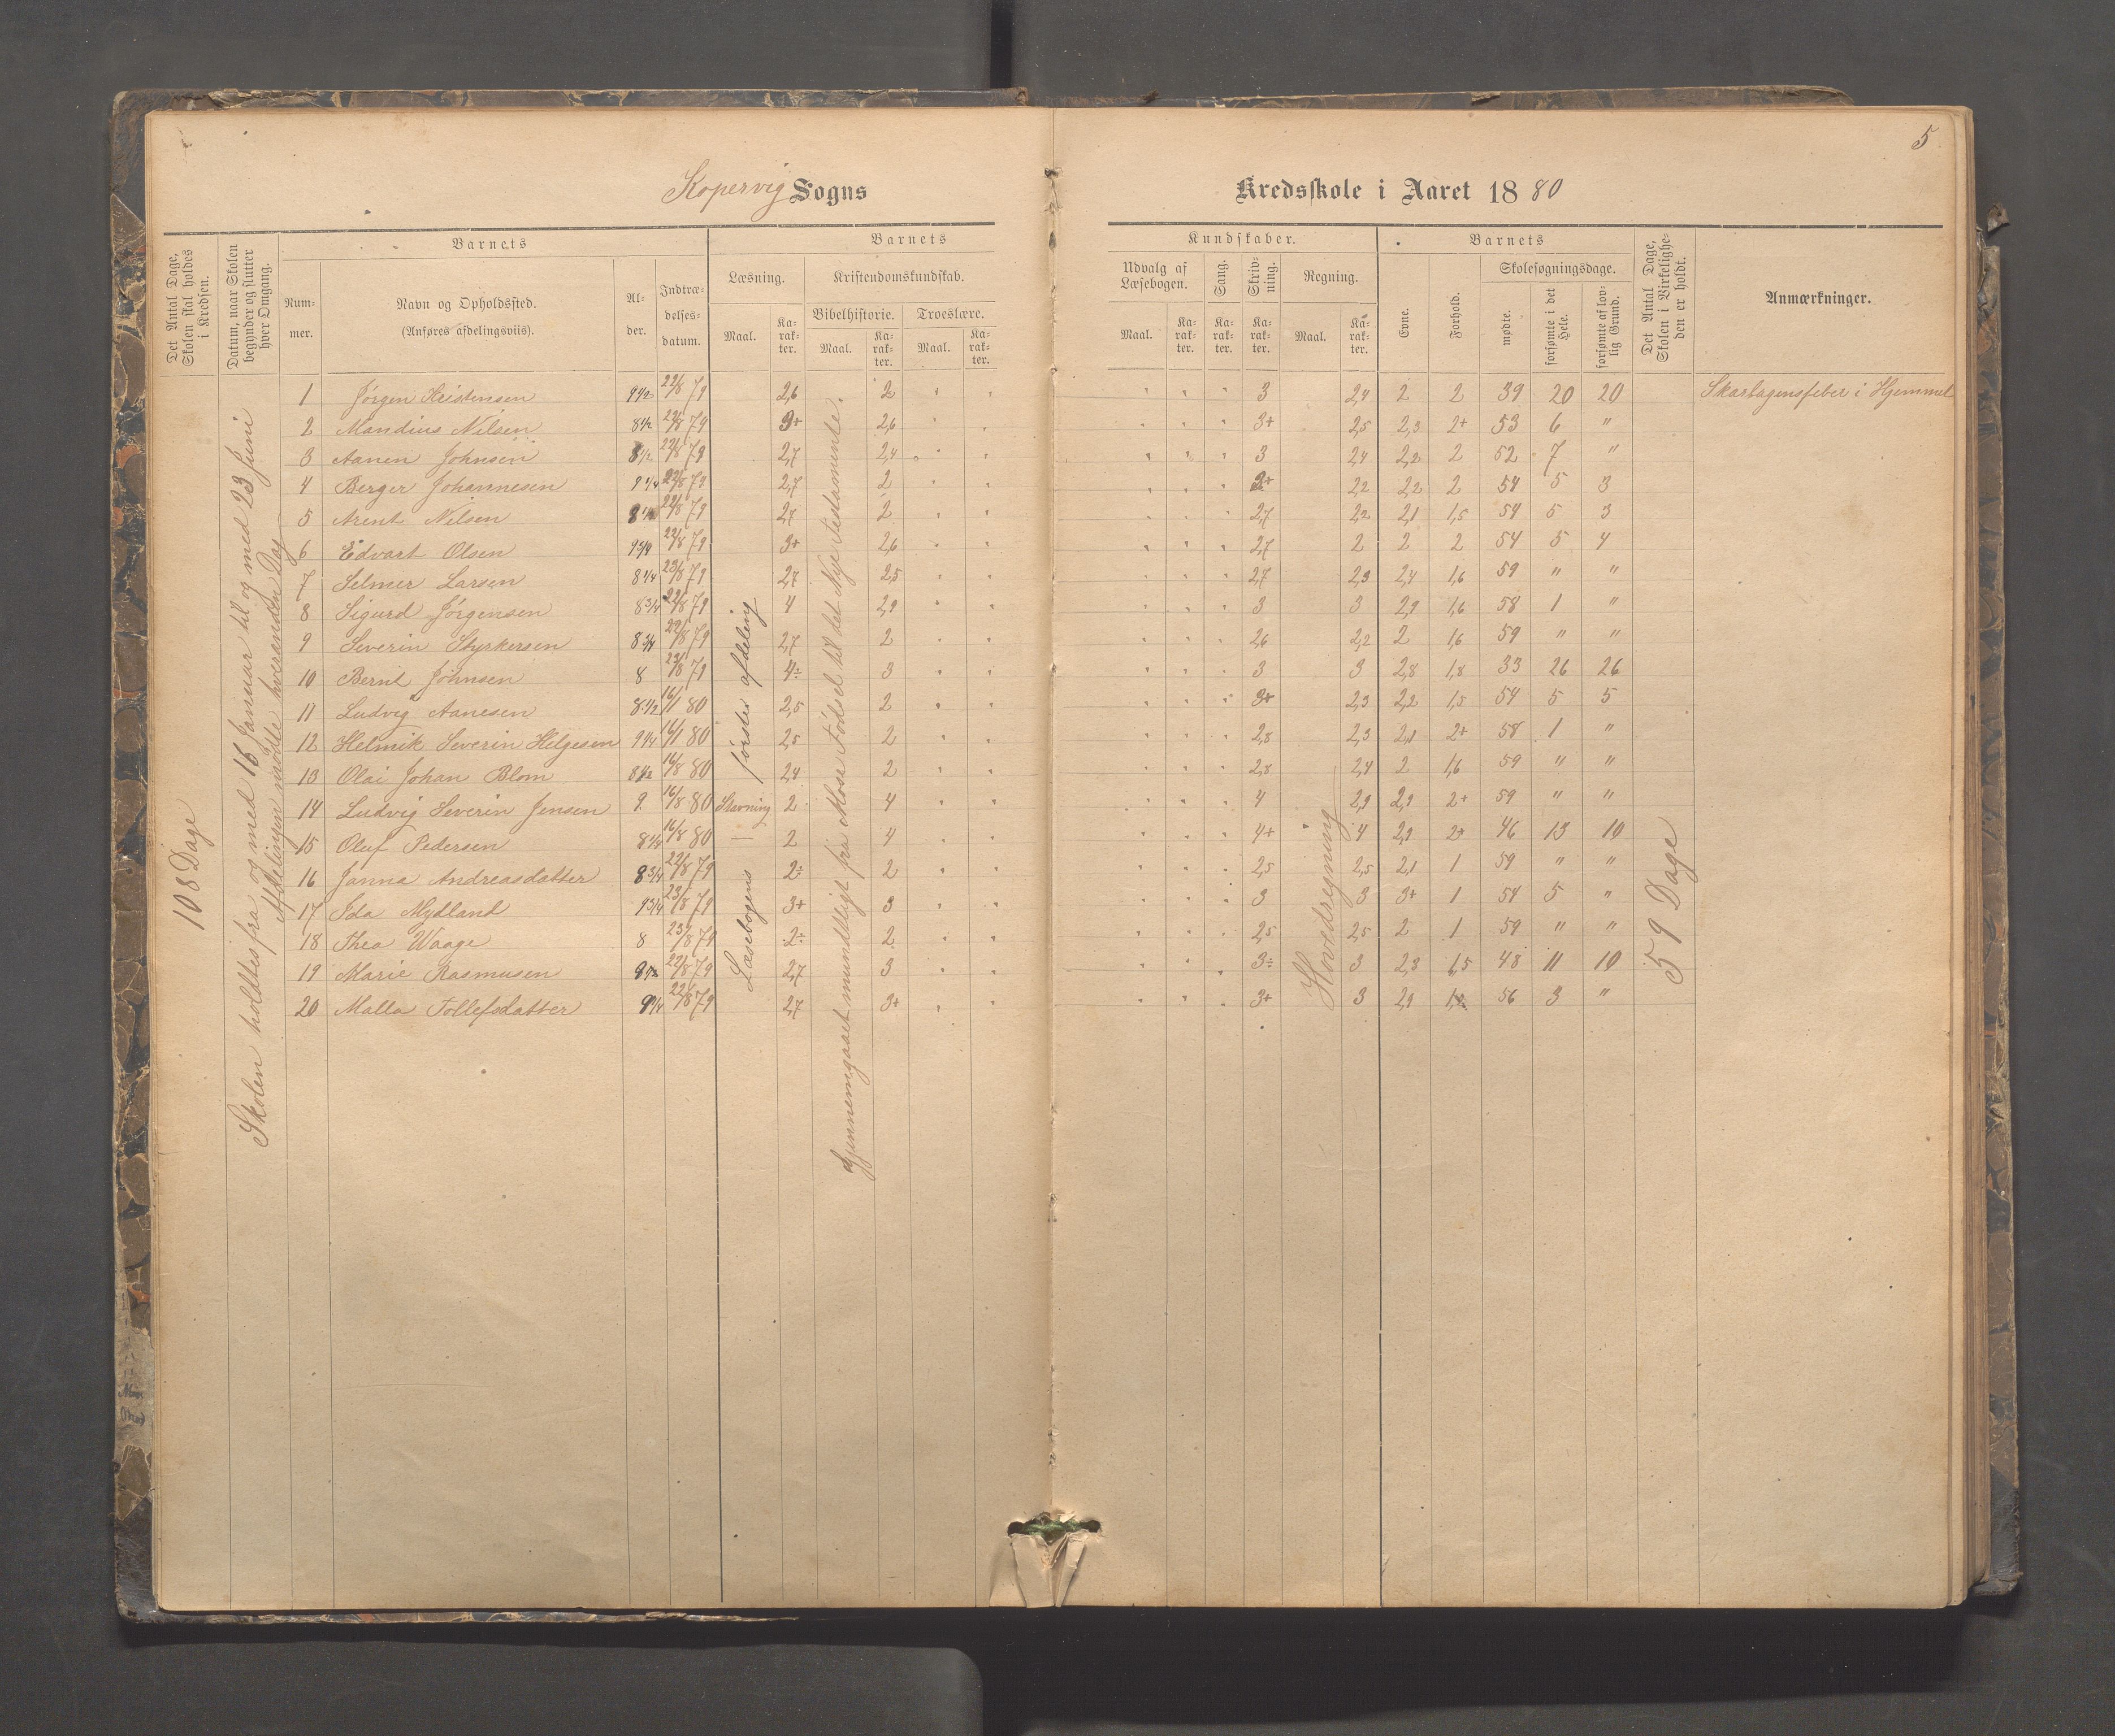 5
Kopervig Sogns Kredsskole i Aaret 1880
Det Antal Dage, Skolen skal holdes i Kredsen.
Datum, naar Skolen begynder og slutter hver Omgang.
Barnets
Num-mer.
Navn og Opholdssted.
(Anføres afdelingsviis).
Al-der.
Indtræ-delses-datum.
Barnets Kundskaber.
Læsning.
Maal.
Ka-rak-ter.
Kristendomskundskab.
Bibelhistorie.
Maal.
Ka-rak-ter.
Troeslære.
Maal.
Ka-rak-ter.
Udvalg af Læsebogen.
Maal.
Ka-rak-ter.
Sang.
Ka-rak-ter.
Skriv-ning.
Ka-rak-ter.
Regning.
Maal.
Ka-rak-ter.
Barnets
Evne.
Forhold.
Skolesøgningsdage.
mødte.
forsømte i det Hele.
forsømte af lov-lig Grund.
Det Antal Dage, Skolen i Virkelighe-den er holdt.
Anmærkninger.
108 Dage
Skolen holdtes fra og med 16 Januar til og med 23 Juni
Afdelingen mødte hveranden Dag
Læsebogens første afdeling
Gjennemgaaet mundtligt fra Mose Fødsel til det Nye Testamente.
Hovedregning
59 Dage
1 Jørgen Kristensen 9 1/2 22/8 79 2,6 2 3 2,4 2 2 39 20 20 Skarlagensfeber i Hjemmet
2 Mandius Nilsen 8 1/2 22/8 79 3+ 2,6 3+ 2,5 2,3 2+ 53 6 "
3 Aanen Johnsen 8 1/2 22/8 79 2,7 2,4 3 2,4 2,2 2 52 7 "
4 Berger Johannesen 9 1/4 22/8 79 2,7 2 3+ 2,2 2,2 2 54 5 3
5 Arent Nilsen 22/8 79 2,7 2 2,7 2,2 2,1 1,5 54 5 3
6 Edvart Olsen 9 3/4 22/8 79 3+ 2,6 2,7 2 2 2 54 5 4
7 Selmer Larsen 8 1/4 23/8 79 2,7 2,5 2,7 2,3 2,4 1,6 59 " "
8 Sigurd Jørgensen 8 3/4 22/8 79 4 2,9 3 3 2,9 1,6 58 1 "
9 Severin Styrkersen 8 3/4 22/8 79 2,7 2 2,6 2,2 2 1,6 59 " "
10 Bernt Johnsen 8 22/8 79 4÷ 3 3 3 2,8 1,8 33 26 26
11 Ludvig Aanesen 8 1/2 16/1 80 2,5 2 3+ 2,3 2,2 1,5 54 5 5
12 Helmik Severin Helgesen 9 1/4 16/1 80 2,5 2 2,8 2,3 2,1 2+ 58 1 "
13 Olai Johan Blom 8 1/2 16/8 80 2,4 2 2,8 2,4 2 1,6 59 " "
14 Ludvig Severin Jensen 9 16/8 80 Stavning 2 4 4 2,9 2,9 2+ 59 " "
15 Oluf Pedersen 8 1/4 16/8 80 — 2 4 4+ 4 2,9 2+ 46 13 10
16 Janna Andreasdatter 8 3/4 22/8 79 2÷ 2 2,5 2,5 2,1 1 59 " "
17 Ida Mydland 9 3/4 23/8 79 3+ 3 3 3 3+ 1 54 5 "
18 Thea Waage 8 23/8 79 2÷ 2 2,5 2,5 2 1 59 " "
19 Marie Rasmusen 22/8 79 2,7 3 3÷ 3 2,3 1,5 48 11 10
20 Malla Tollefsdatter 9 1/4 22/8 79 2,7 3+ 3+ 3 2,9 56 3 "